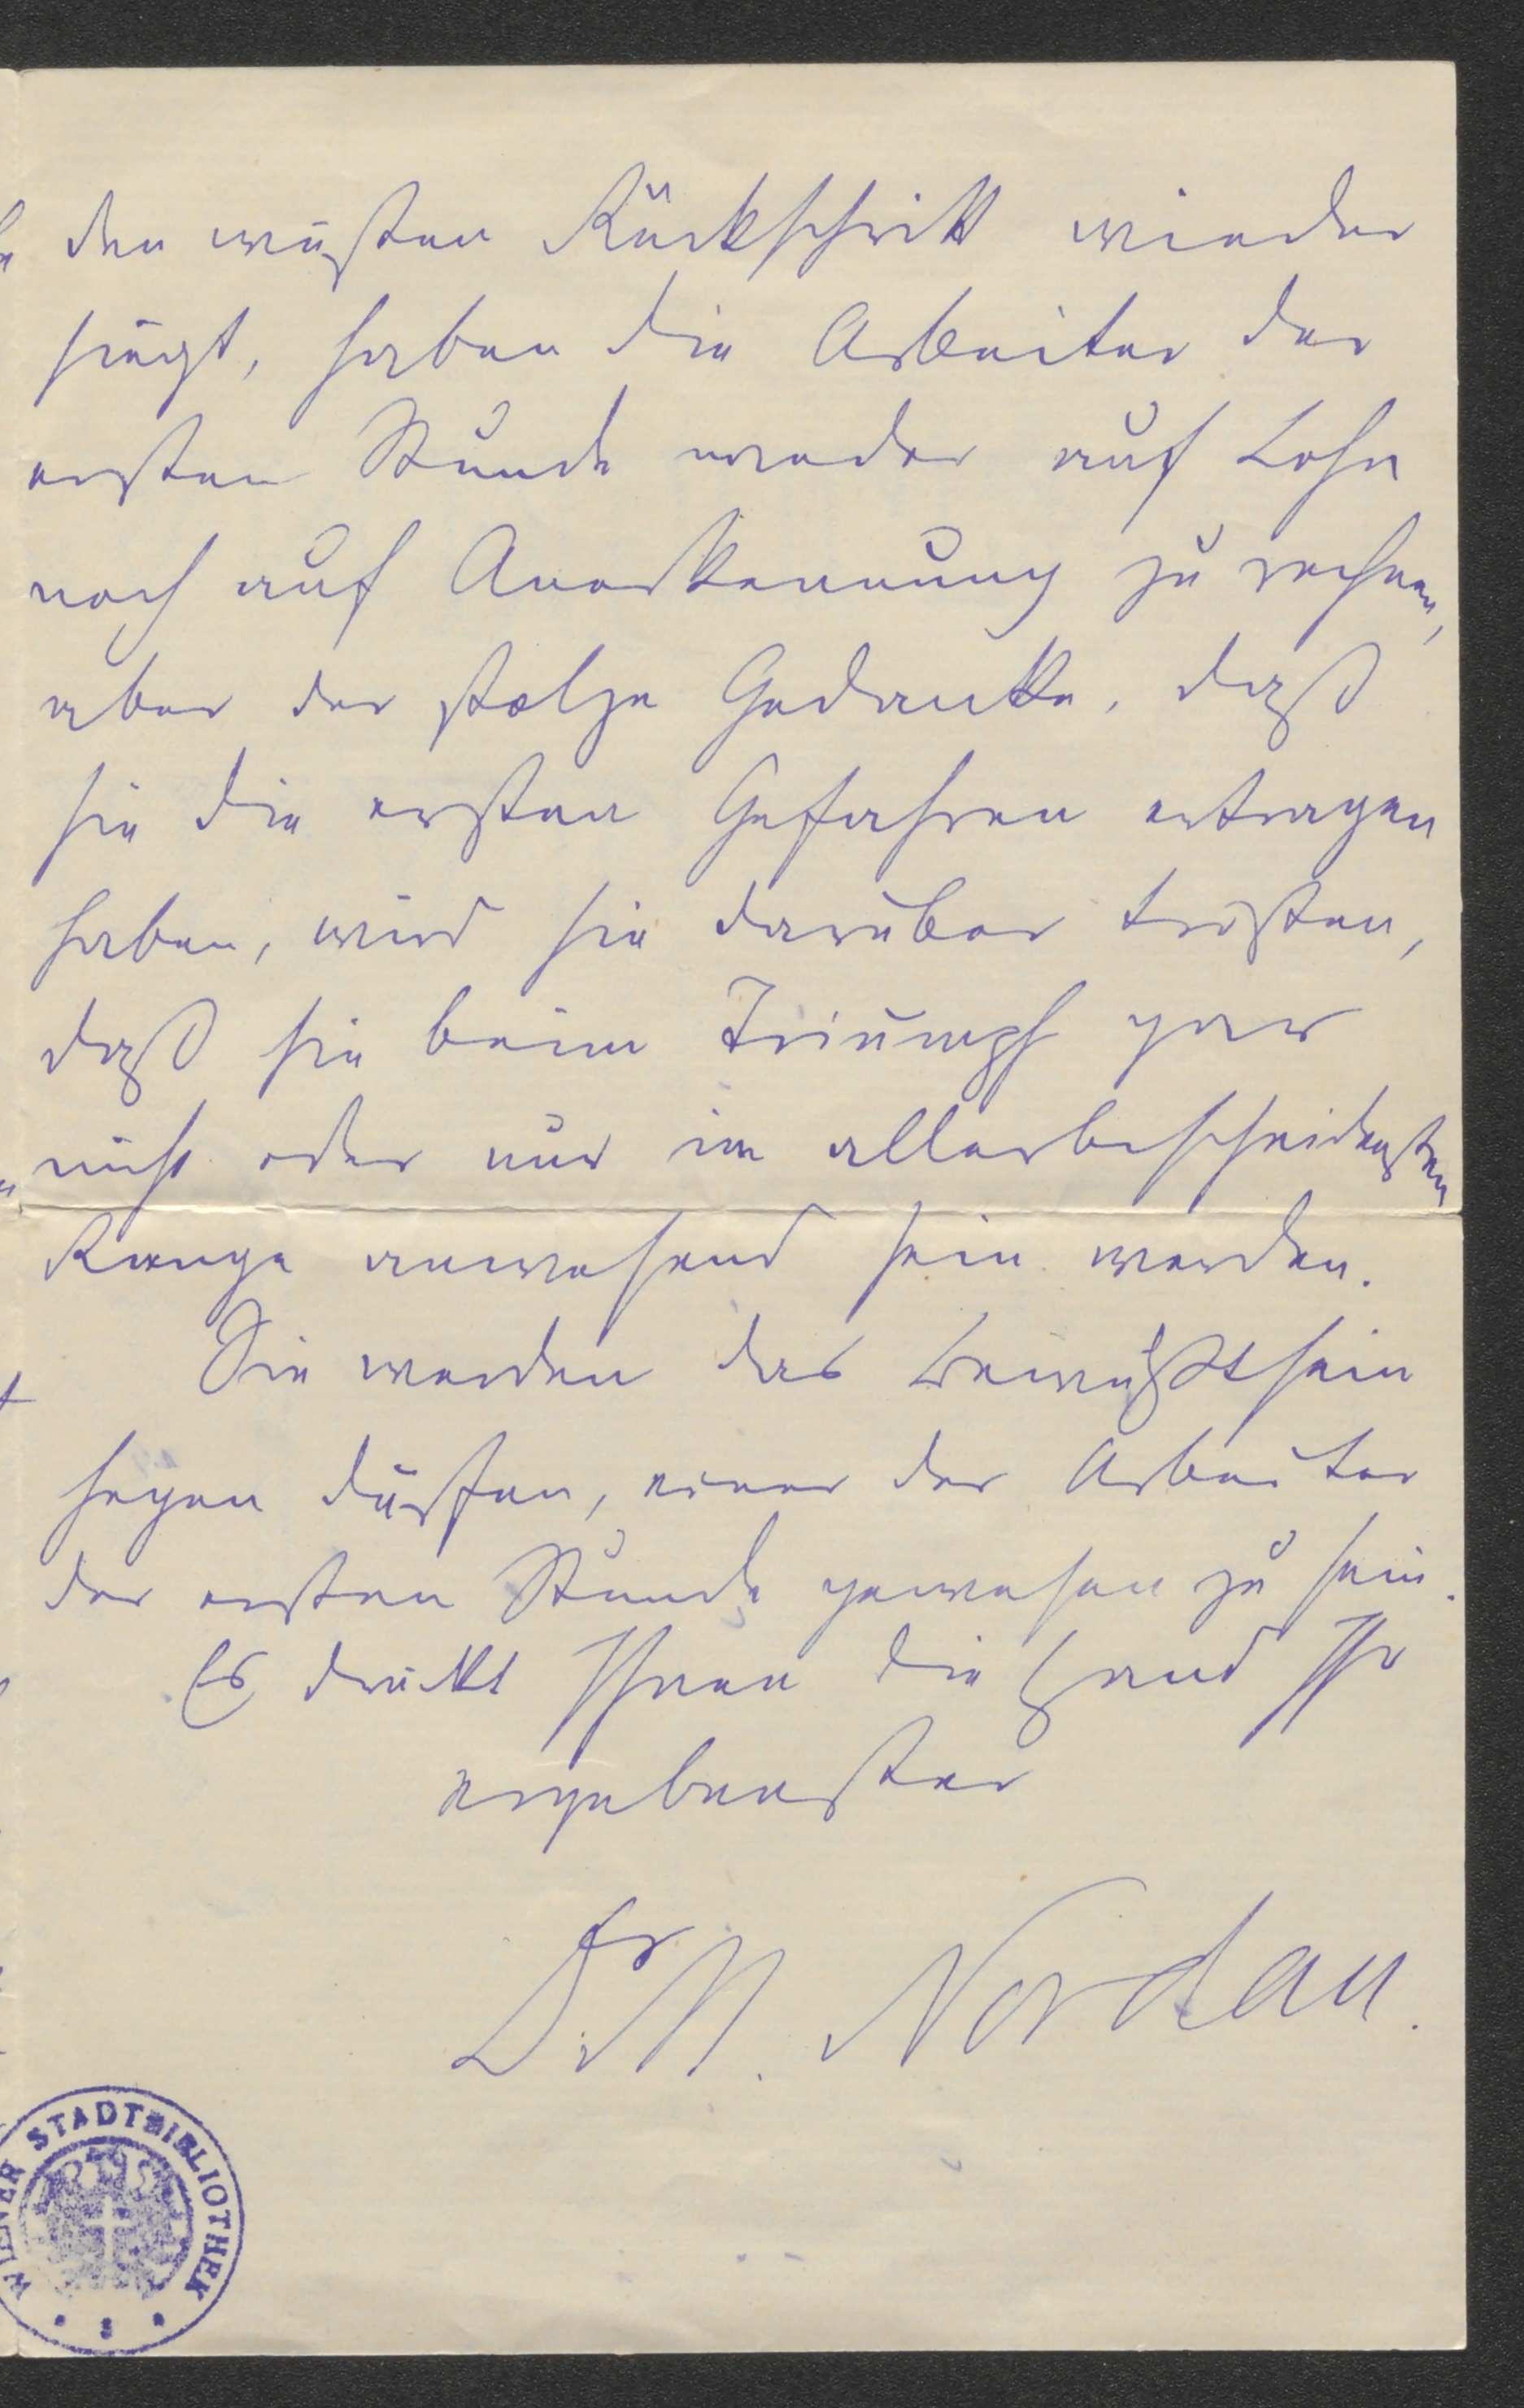 den wüsten Rückschritt wieder
siegt, haben die Arbeiter der
ersten Stunde weder auf Lohn
noch auf Anerkennung zu rechnen,
aber der stolze Gedanke, daß
sie die ersten Gefahren ertragen
haben, wird sie darüber trösten,
daß sie beim Triumph gar
nicht oder nur im allerbescheidensten
Range anwesend sein werden.
Sie werden das Bewußtsein
hegen dürfen, einer der Arbeiter
der ersten Stunde gewesen zu sein.
Es drückt Ihnen die Hand Ihr
ergebenster
Dr M. Nordau.
WIENER STADTBIBLIOTHEK